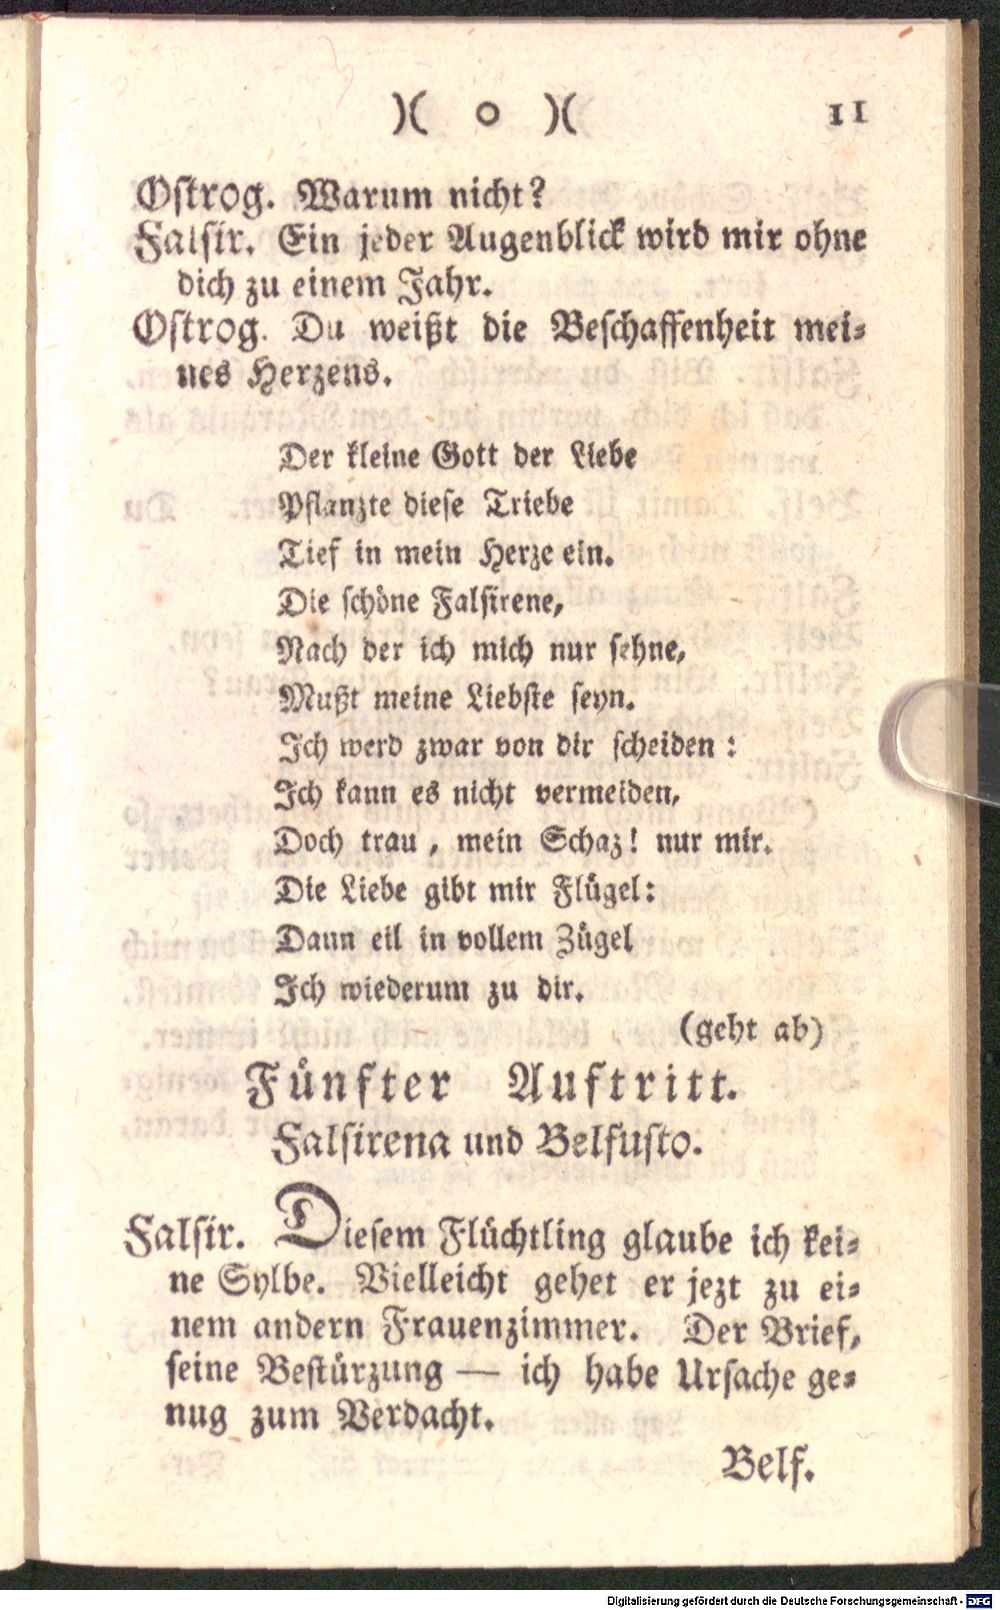 )( o )( 11
Ostrog. Warum nicht?
Falsir. Ein jeder Augenblick wird mir ohne
dich zu einem Jahr.
Ostrog. Du weißt die Beschaffenheit mei-
nes Herzens.
Der kleine Gott der Liebe
Pflanzte diese Triebe
Tief in mein Herze ein.
Die schöne Falsirene,
Nach der ich mich nur sehne,
Mußt meine Liebste seyn.
Ich werd zwar von dir scheiden:
Ich kann es nicht vermeiden,
Doch trau, mein Schaz! nur mir.
Die Liebe gibt mir Flügel:
Dann eil in vollem Zügel
Ich wiederum zu dir.
(geht ab)
Fünfter Auftritt.
Falsirena und Belfusto.
Falsir. Diesem Flüchtling glaube ich kei-
ne Sylbe. Vielleicht gehet er jezt zu ei-
nem andern Frauenzimmer. Der Brief,
seine Bestürzung — ich habe Ursache ge-
nug zum Verdacht.
Belf.
Digitalisierung gefördert durch die Deutsche Forschungsgemeinschaft - DFG